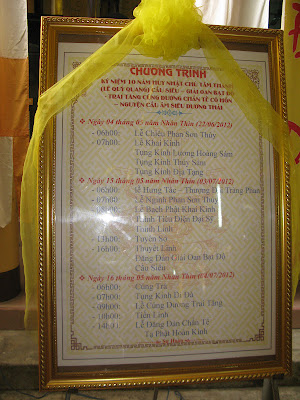 CHƯƠNG TRÌNH
KỶ NIỆM 10 NĂM HUÝ NHẬT CHƯ TÂM THÀNH
(LÊ QUÝ QUANG) CẦU SIÊU - GIẢI OAN BẠT ĐỘ
- TRAI TĂNG CÚNG DƯỜNG CHẨN TẾ CÔ HỒN
- NGUYỆN CẦU ÂM SIÊU DƯƠNG THÁI
Ngày 04 tháng 05 năm Nhâm Thìn (22/06/2012)
- 06h00: Lễ Chiêu Phan Sơn Thủy
- 07h00: Lễ Khai Kinh
Tụng Kinh Lương Hoàng Sám
Tụng Kinh Thủy Sám
Tụng Kinh Địa Tạng
Ngày 15 tháng 05 năm Nhâm Thìn (03/07/2012)
- 06h00: Sê Hưng Tác - Thượng Đại Tràng Phan
Lễ Nghinh Phan Sơn Thủy
Lễ Bạch Phật Khai Kinh
Thỉnh Tiêu Diện Đại Sĩ
Thỉnh Linh
- 13h00: Tuyên Sớ
- 16h00: Thuyết Linh
Đăng Đàn Giải Oan Bạt Độ
Cầu Siêu
Ngày 16 tháng 05 năm Nhâm Thìn (04/07/2012)
- 06h00: Cúng Trà
- 07h00: Tụng Kinh Di Đà
- 09h00: Lễ Cúng Dường Trai Tăng
- 10h00: Tiến Linh
Lễ Đăng Đàn Chẩn Tế
Tạ Phật Hoàn Kinh